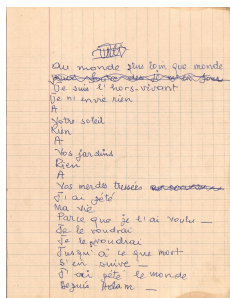 Au monde plus loin que monde
Je suis l'hors-vivant
Je n'envie rien
A
Votre soleil
Rien
A
Vos jardins
Rien
A
Vos merdes tressées
J'ai pété
Ma vie
Parce que je l'ai voulu _
Je le voudrai
Je le pvoudrai
Jusqu'à ce que mort
S'en suive _
J'ai pété le monde
Depuis Adam _